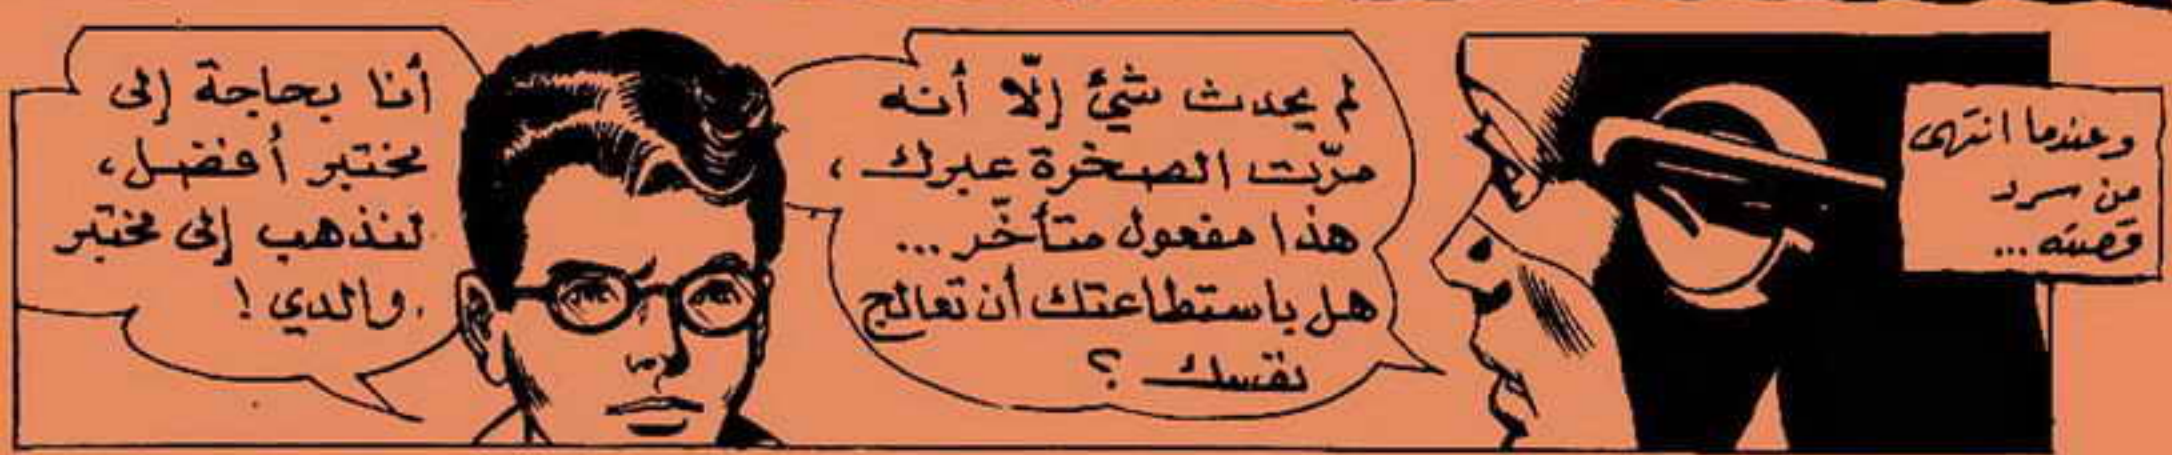 وعندما انتهى
من سرد
قصته...
لم يحدث شيئ إلّا أنه
مرّت الصخرة عبرك،
هذا مفعول متأخّر...
هل باستطاعتك أن تعالج
نفسك؟
أنا بحاجة إلى
مختبر أفضل،
لنذهب إلى مختبر
والدي!